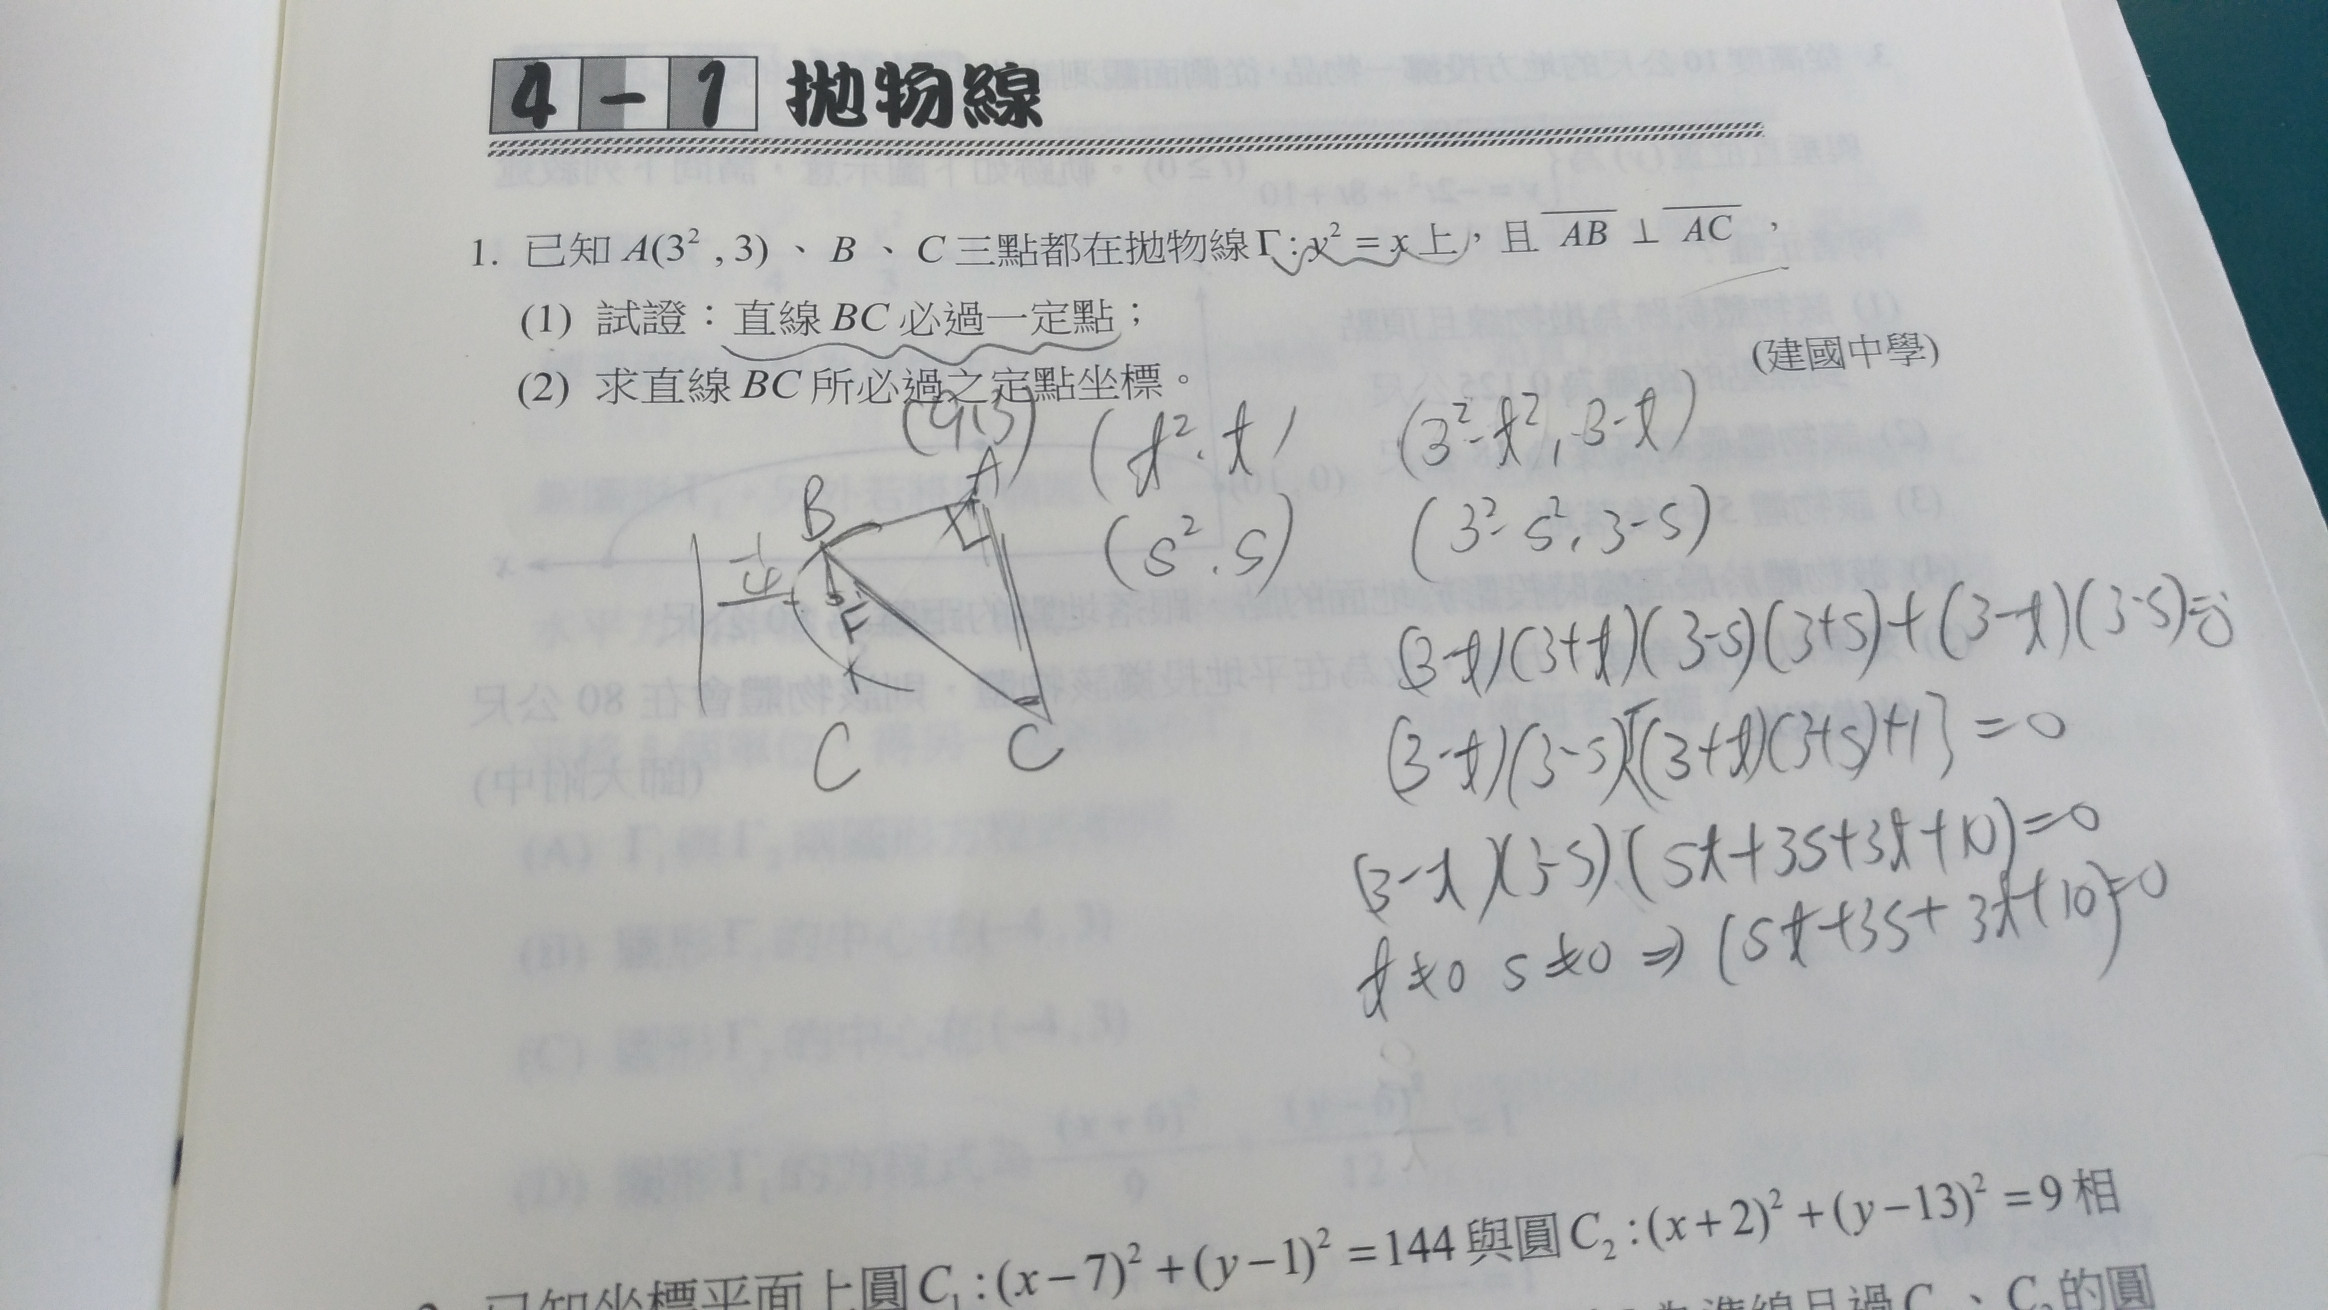 4-1 拋物線
1. 已知 A(3², 3)、B、C 三點都在拋物線 Γ : y² = x 上,且 AB ⊥ AC,
(1) 試證:直線 BC 必過一定點;
(2) 求直線 BC 所必過之定點坐標。
(建國中學)
(9,3)
A
B
-1/4
F
C
C
(t², t)
(s², s)
(3²-t², 3-t)
(3²-s², 3-s)
(3-t)(3+t)(3-s)(3+s)+(3-t)(3-s)=0
(3-t)(3-s)[(3+t)(3+s)+1]=0
(3-t)(3-s)(st+3s+3t+10)=0
t≠0 s≠0 ⇒ (st+3s+3t+10)=0
已知坐標平面上圓 C₁ : (x-7)² + (y-1)² = 144 與圓 C₂ : (x+2)² + (y-13)² = 9 相
為準線且過 C₁、C₂ 的圓